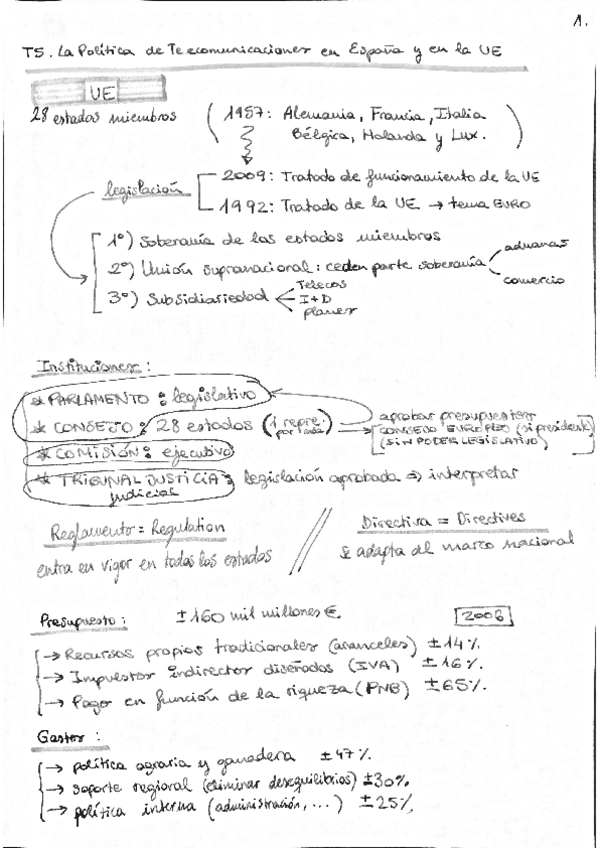 1.
T5. La Política de Telecomunicaciones en España y en la UE
UE
28 estados miembros
(1957: Alemania, Francia, Italia
Bélgica, Holanda y Lux.)
legislación
2009: Tratado de funcionamiento de la UE
1992: Tratado de la UE → tema EURO
1º) Soberanía de los estados miembros
2º) Unión supranacional: ceden parte soberanía
aduanas
comercio
3º) Subsidiariedad
Telecos
I+D
planes
Instituciones:
* PARLAMENTO: legislativo
* CONSEJO: 28 estados (1 repre. por cada)
aprobar presupuestos
CONSEJO EUROPEO (si presidente)
(SIN PODER LEGISLATIVO)
* COMISIÓN: ejecutivo
* TRIBUNAL JUSTICIA: legislación aprobada ⇒ interpretar
judicial
Reglamento = Regulation
entra en vigor en todos los estados
//
Directiva = Directives
se adapta al marco nacional
Presupuesto: ±160 mil millones €.
2006
→ Recursos propios tradicionales (aranceles) ±14%.
→ Impuestos indirectos diseñados (IVA) ±16%.
→ Pagos en función de la riqueza (PNB) ±65%.
Gastos:
→ política agraria y ganadera ±47%.
→ soporte regional (eliminar desequilibrios) ±30%.
→ política interna (administración, ...) ±25%.